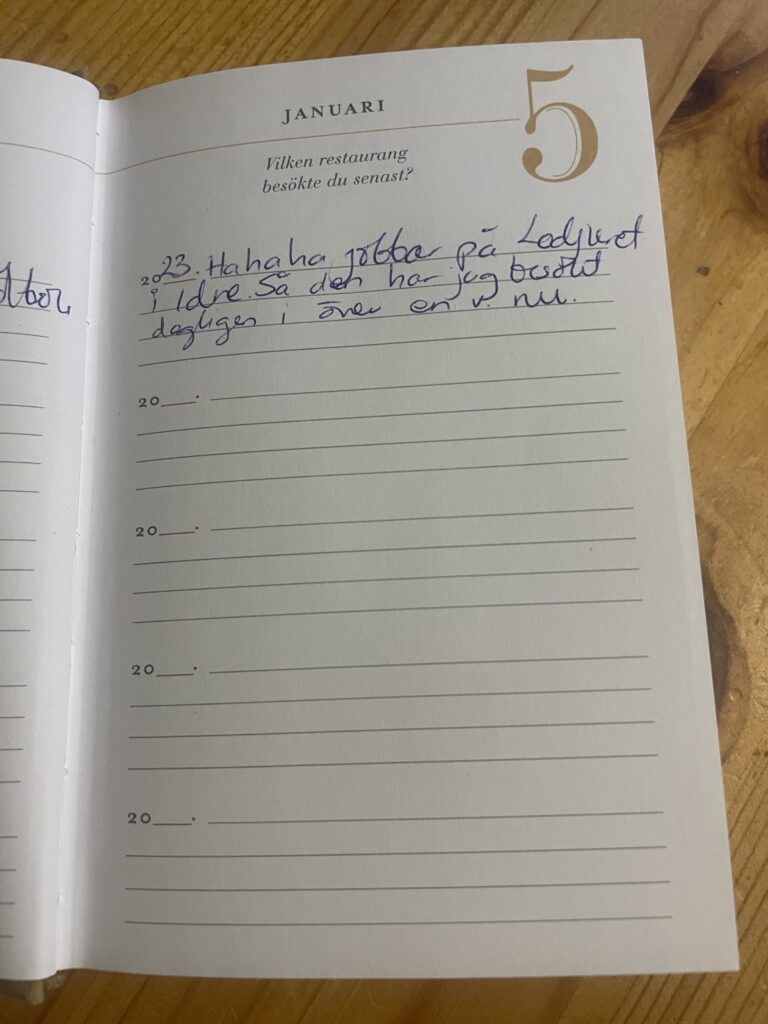 JANUARI
5
Vilken restaurang
besökte du senast?
2023. Hahaha jobbar på Lodjuret
i Idre. Så den har jag besökt
dagligen i över en v. nu.
20___.
20___.
20___.
20___.